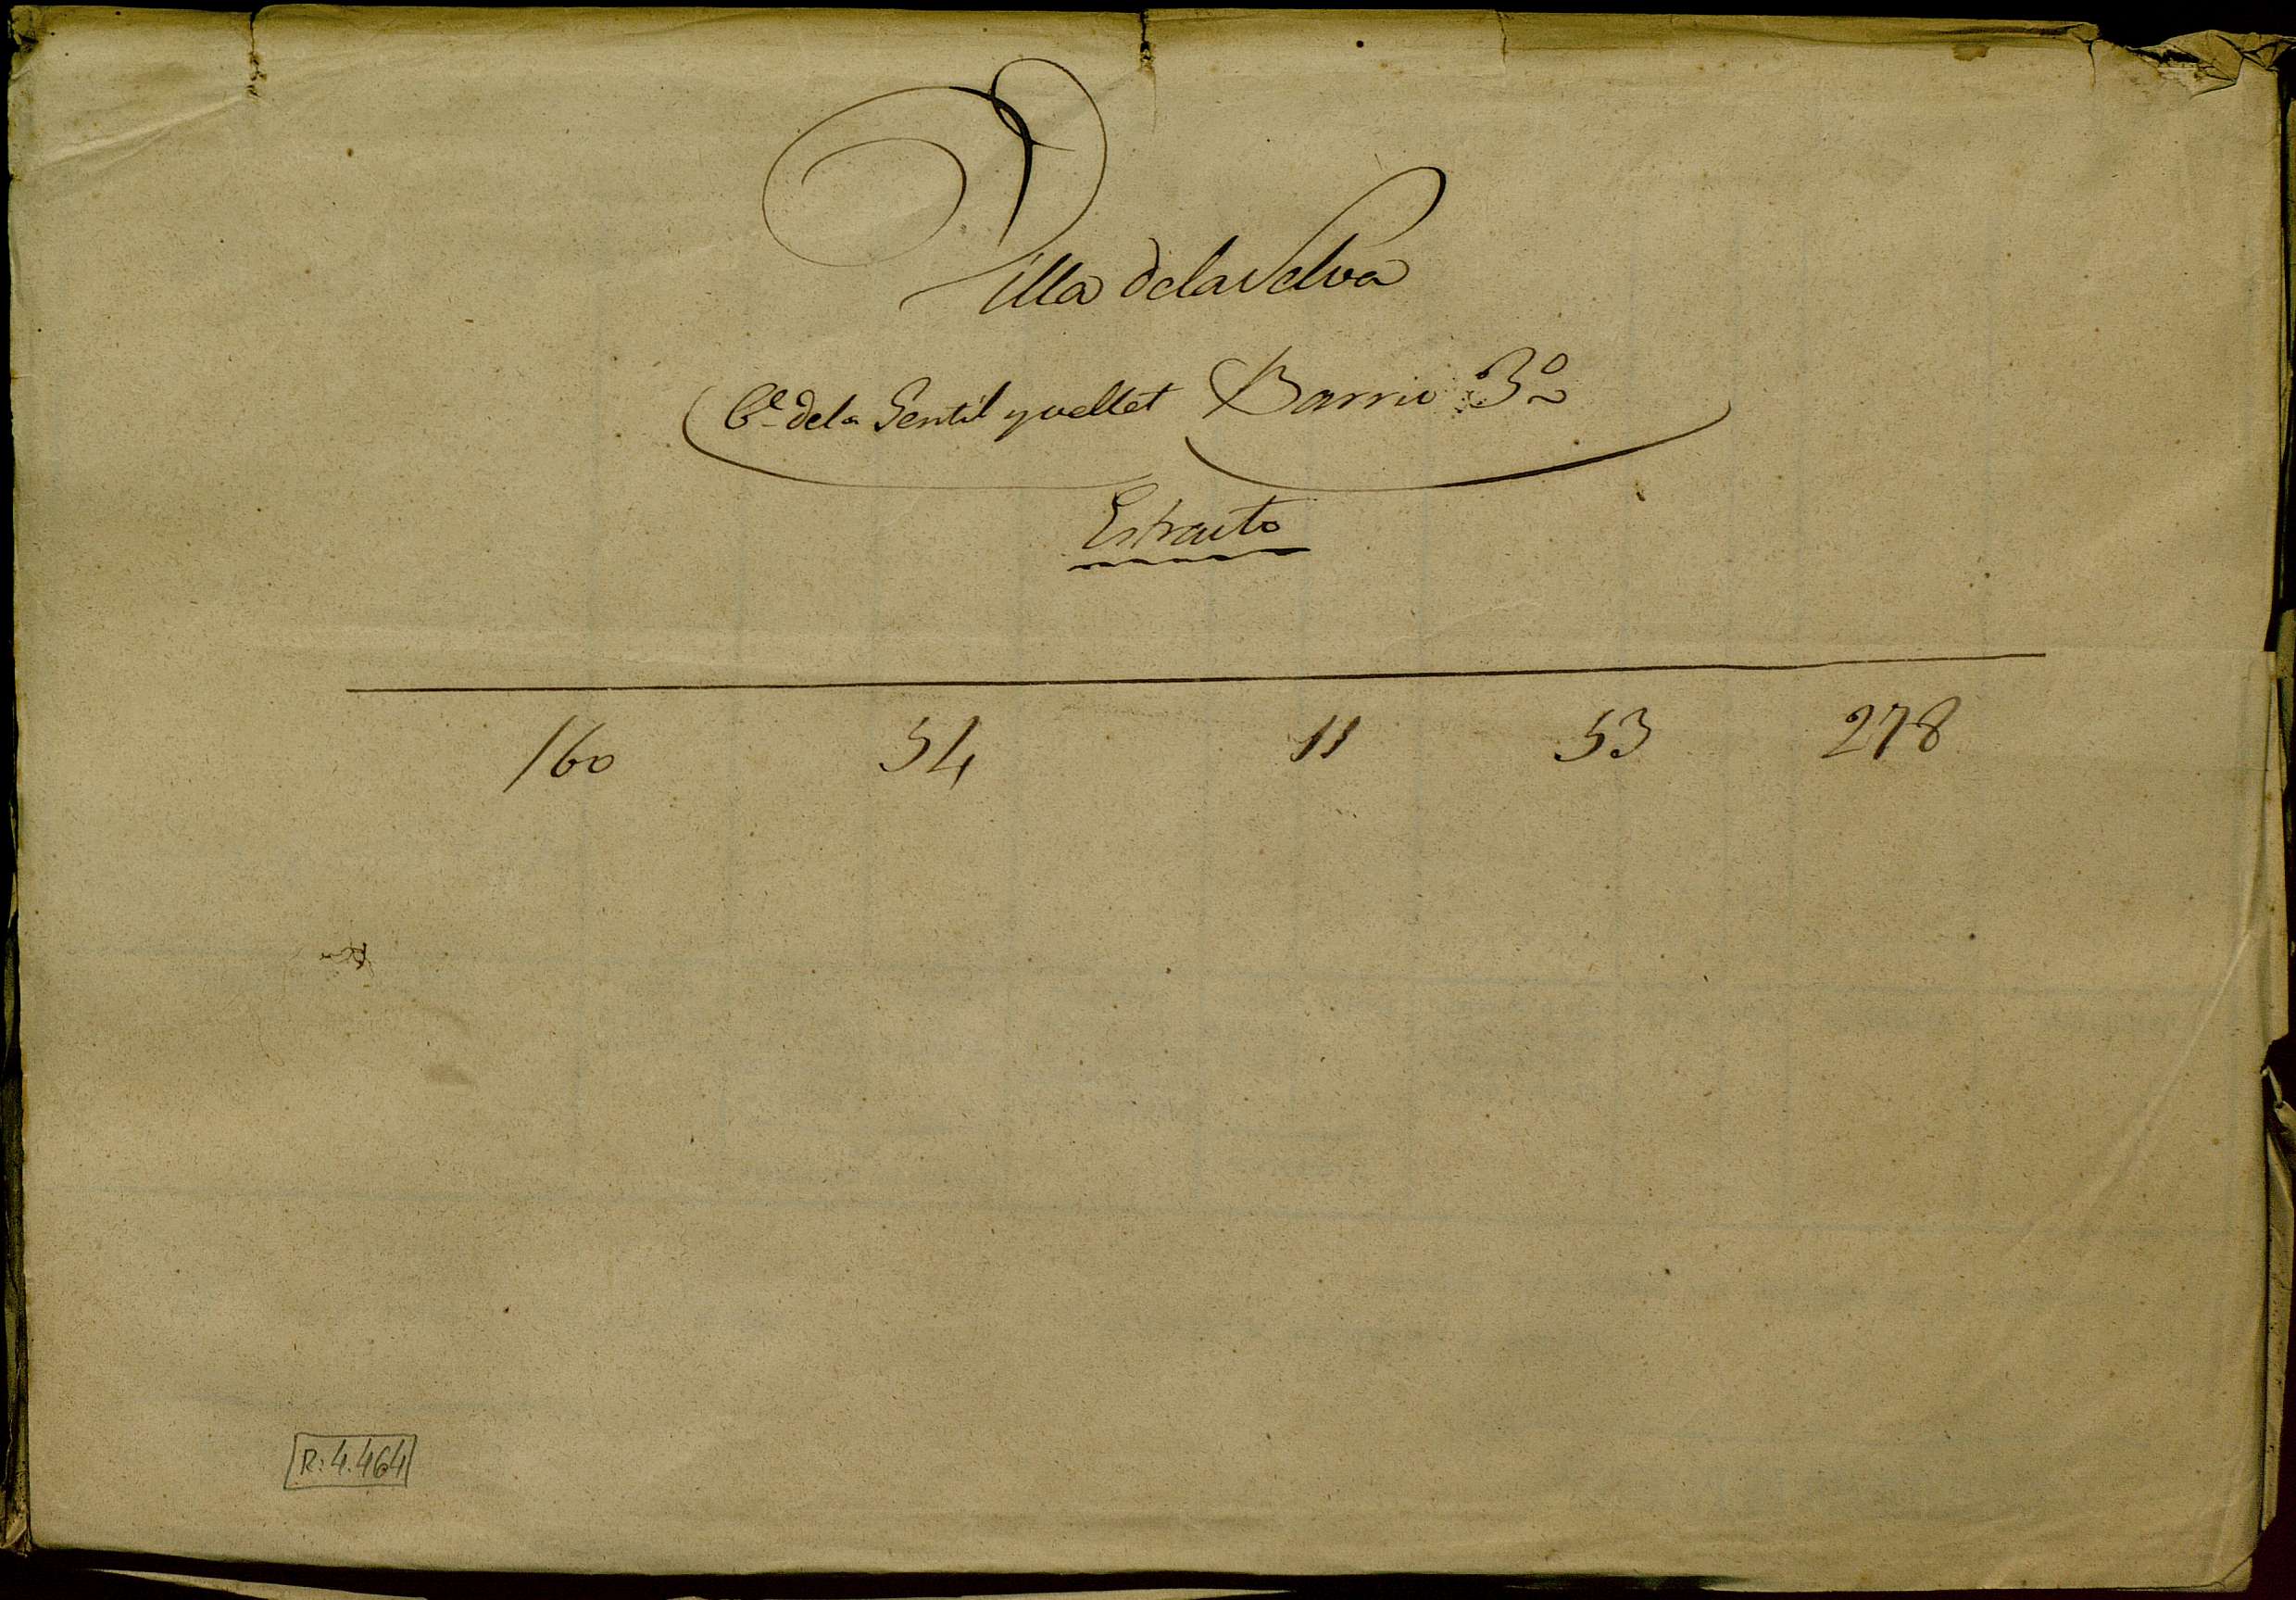 Villa de la Selva
Ce. de la Sentil y vellet Barrio 3º
Estracto
160 54 11 53 278
R: 4.464